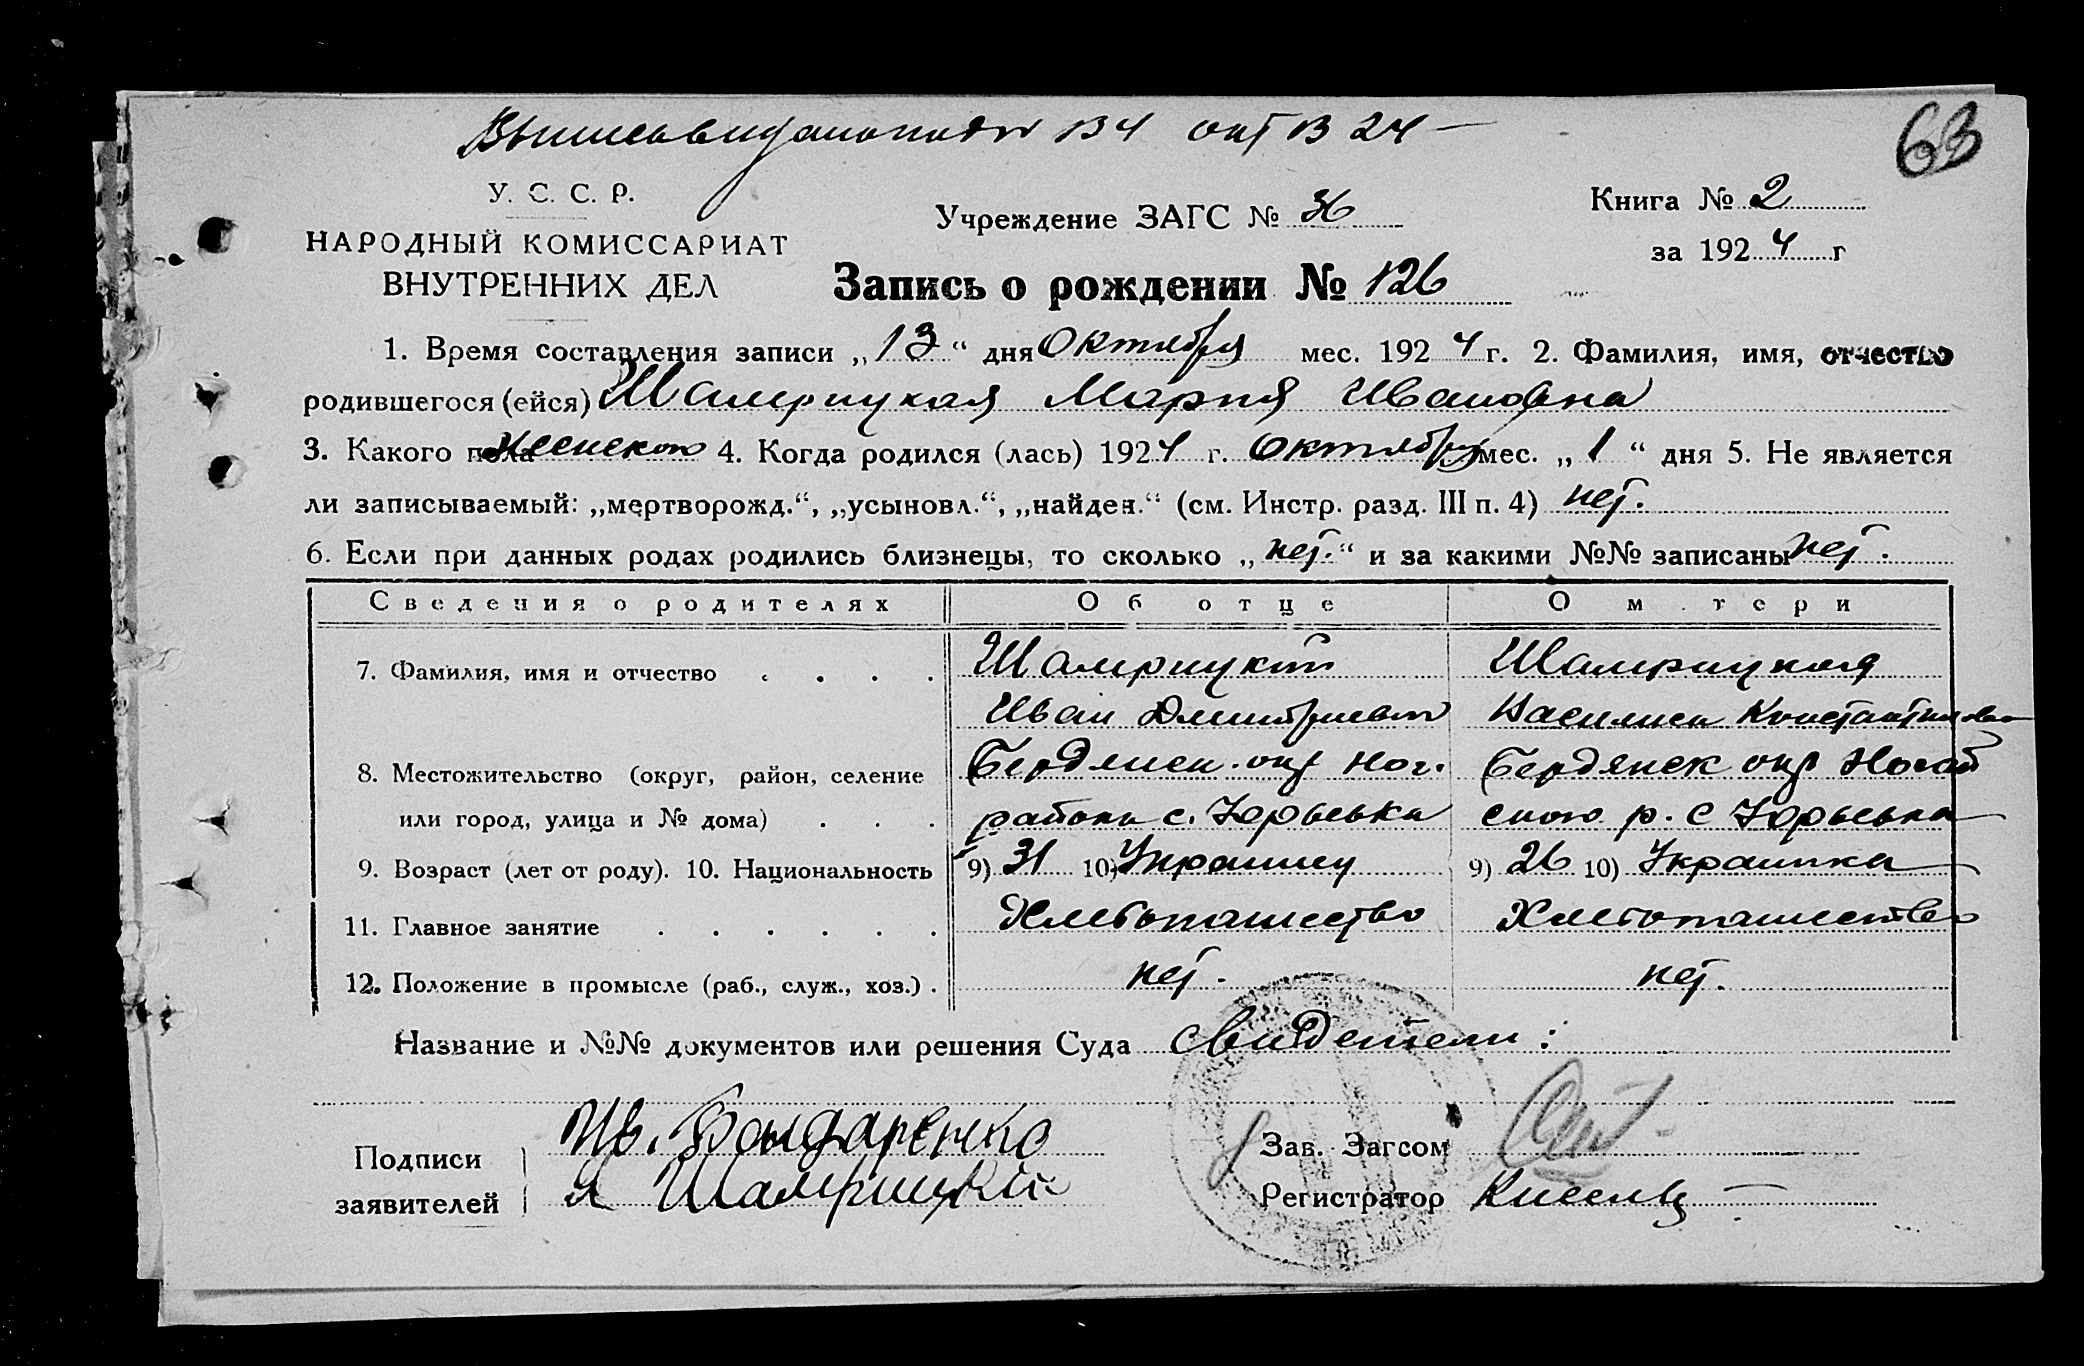 окт В 24
63
У. С. С. Р.
НАРОДНЫЙ КОМИССАРИАТ
ВНУТРЕННИХ ДЕЛ
Учреждение ЗАГС № 36
Книга № 2
за 1924 г
Запись о рождении № 126
1. Время составления записи „13“ дня Октября мес. 1924 г. 2. Фамилия, имя, отчество
родившегося (ейся) Шамрицкая Мария Ивановна
3. Какого пола женского 4. Когда родился (лась) 1924 г. Октября мес. „1“ дня 5. Не является
ли записываемый: „мертворожд.“, „усыновл.“, „найден.“ (см. Инстр. разд. III п. 4) нет.
6. Если при данных родах родились близнецы, то сколько „нет.“ и за какими №№ записаны нет.
Сведения о родителях Об отце О м тери
7. Фамилия, имя и отчество . . . . Шамрицкий Шамрицкая
Иван Дмитриевич Василиса Константиновна
8. Местожительство (округ, район, селение Бердянск. окр Ног. Бердянск окр Ногай
или город, улица и № дома) . . . района с. Юрьевка ского р. с Юрьевка
9. Возраст (лет от роду). 10. Национальность 9) 31 10) Украинец 9) 26 10) Украинка
11. Главное занятие . . . . . . Хлебопашество Хлебопашество
12. Положение в промысле (раб., служ., хоз.) . нет. нет.
Название и №№ документов или решения Суда свидетели:
Подписи
заявителей
Ив. Бондаренко
Шамрицкий
Зав. Загсом
Регистратор